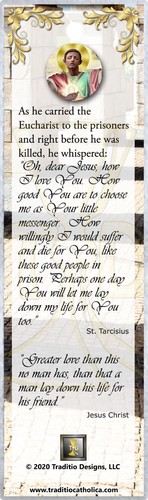 As he carried the
Eucharist to the prisoners
and right before he was
killed, he whispered:
"Oh, dear Jesus, how
I love You. How
good You are to choose
me as Your little
messenger. How
willingly I would suffer
and die for You, like
these good people in
prison. Perhaps one day
You will let me lay
down my life for You
too."
St. Tarcisius
"Greater love than this
no man has, than that a
man lay down his life for
his friend."
Jesus Christ
© 2020 Traditio Designs, LLC
www.traditiocatholica.com